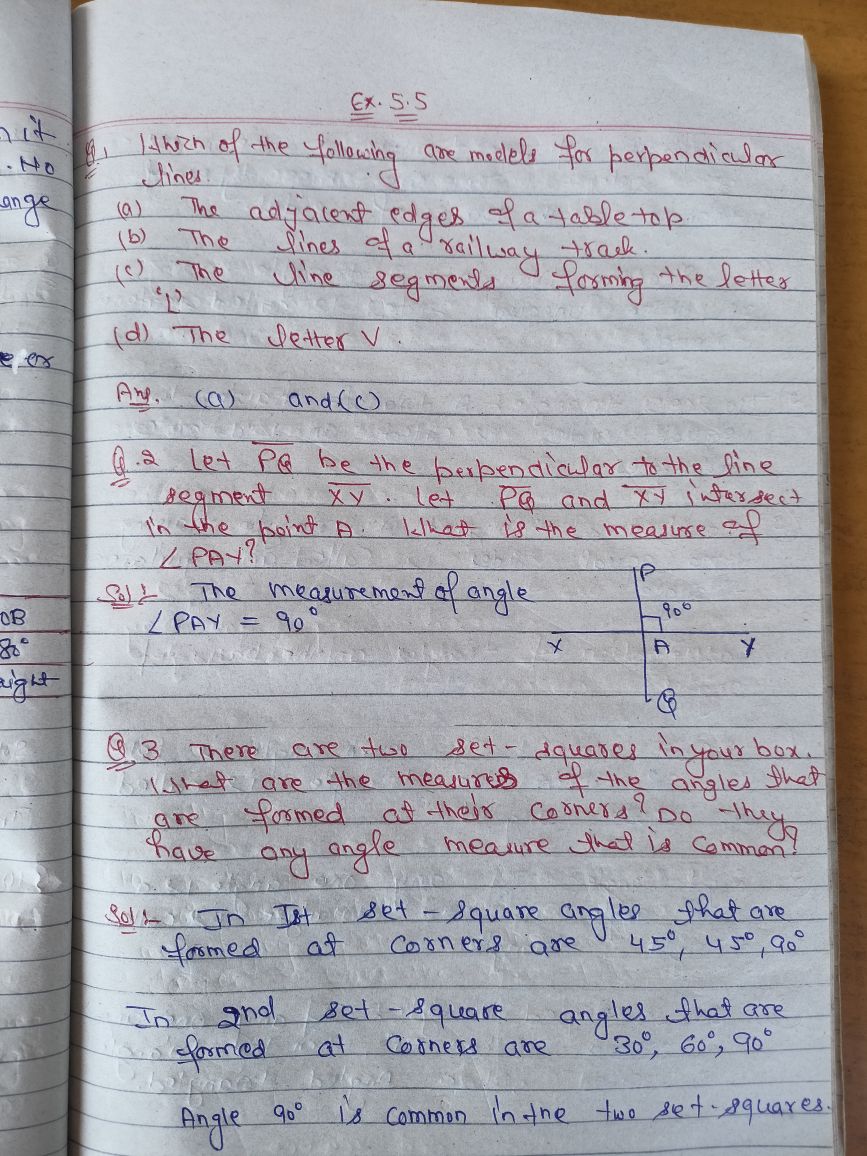 n it
. No
ange
e or
OB
80°
aight
Ex. 5.5
Q.1 Which of the following are models for perpendicular
lines.
(a) The adjacent edges of a table top.
(b) The lines of a railway track.
(c) The line segments forming the letter
'L'
(d) The letter V.
Ans. (a) and (c)
Q.2 Let PQ be the perpendicular to the line
segment XY. Let PQ and XY intersect
in the point A. What is the measure of
∠PAY?
Sol:- The measurement of angle
∠PAY = 90°
P
90°
X A Y
Q
Q.3 There are two set-squares in your box.
What are the measures of the angles that
are formed at their corners? Do they
have any angle measure that is common?
Sol:- In Ist set-square angles that are
formed at corners are 45°, 45°, 90°
In 2nd set-square angles that are
formed at corners are 30°, 60°, 90°
Angle 90° is common in the two set-squares.